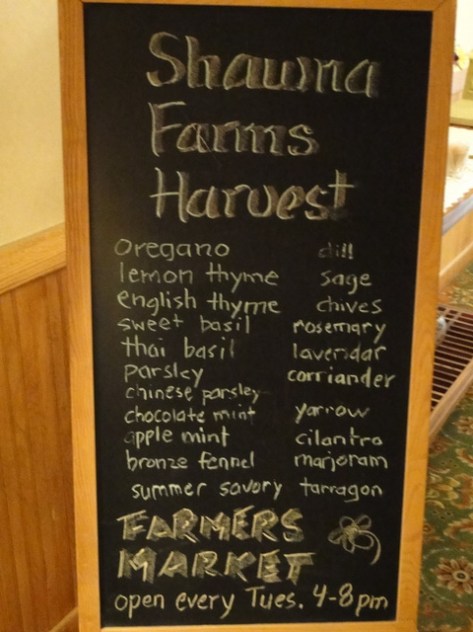 Shawna
Farms
Harvest
oregano dill
lemon thyme sage
english thyme chives
sweet basil rosemary
thai basil lavendar
parsley corriander
chinese parsley
chocolate mint yarrow
apple mint cilantro
bronze fennel marjoram
summer savory tarragon
FARMERS
MARKET
open every Tues. 4-8pm